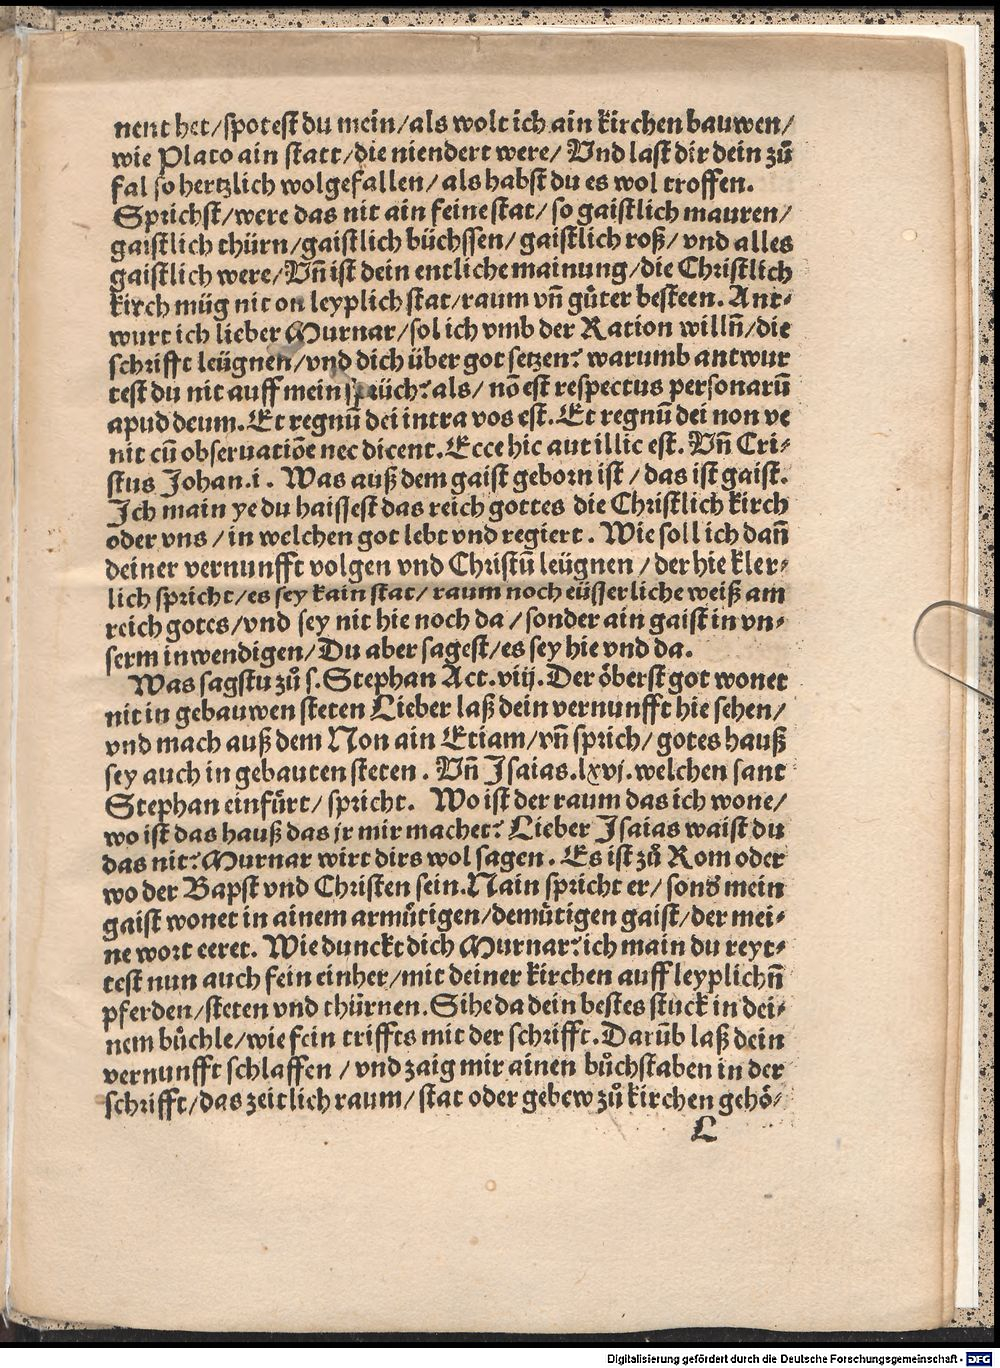 nent het/spotest du mein/als wolt ich ain kirchen bauwen/
wie Plato ain statt/die niendert were/ Vnd last dir dein zů
fal so hertzlich wolgefallen/ als habst du es wol troffen.
Sprichst/were das nit ain feine stat/ so gaistlich mauren/
gaistlich thürn/gaistlich büchssen/ gaistlich roß/ vnd alles
gaistlich were/Vn̄ ist dein entliche mainung/die Christlich
kirch müg nit on leyplich stat/raum vn̄ gůter besteen. Ant⸗
wurt ich lieber Murnar/sol ich vmb der Ration willn̄/die
schrifft leügnen/vnd dich über got setzen? warumb antwur
test du nit auff mein sprüch? als/ nō est respectus personarū
apud deum. Et regnū dei intra vos est. Et regnū dei non ve
nit cū obseruatiōe nec dicent. Ecce hic aut illic est. Vn̄ Cri⸗
stus Johan.i. Was auß dem gaist geborn ist / das ist gaist.
Ich main ye du haissest das reich gottes die Christlich kirch
oder vns / in welchen got lebt vnd regiert. Wie soll ich dan̄
deiner vernunfft volgen vnd Christū leügnen / der hie kler⸗
lich spricht/es sey kain stat/ raum noch eüsserliche weiß am
reich gotes/vnd sey nit hie noch da / sonder ain gaist in vn⸗
serm inwendigen/ Du aber sagest/es sey hie vnd da.
Was sagstu zů s. Stephan Act.viij. Der öberst got wonet
nit in gebauwen steten Lieber laß dein vernunfft hie sehen/
vnd mach auß dem Non ain Etiam/vn̄ sprich/ gotes hauß
sey auch in gebauten steten. Vn̄ Isaias.lxvj. welchen sant
Stephan einfürt/ spricht. Wo ist der raum das ich wone/
wo ist das hauß das jr mir machet? Lieber Isaias waist du
das nit? Murnar wirt dirs wol sagen. Es ist zů Rom oder
wo der Bapst vnd Christen sein. Nain spricht er/ sonder mein
gaist wonet in ainem armůtigen/demůtigen gaist/der mei⸗
ne wort eeret. Wie dunckt dich Murnar? ich main du reyt⸗
test nun auch fein einher/mit deiner kirchen auff leyplichn̄
pferden/steten vnd thürnen. Sihe da dein bestes stuck in dei⸗
nem bůchle/wie fein triffts mit der schrifft. Darūb laß dein
vernunfft schlaffen / vnd zaig mir ainen bůchstaben in der
schrifft/das zeitlich raum/ stat oder gebew zů kirchen gehö⸗
L
Digitalisierung gefördert durch die Deutsche Forschungsgemeinschaft - DFG